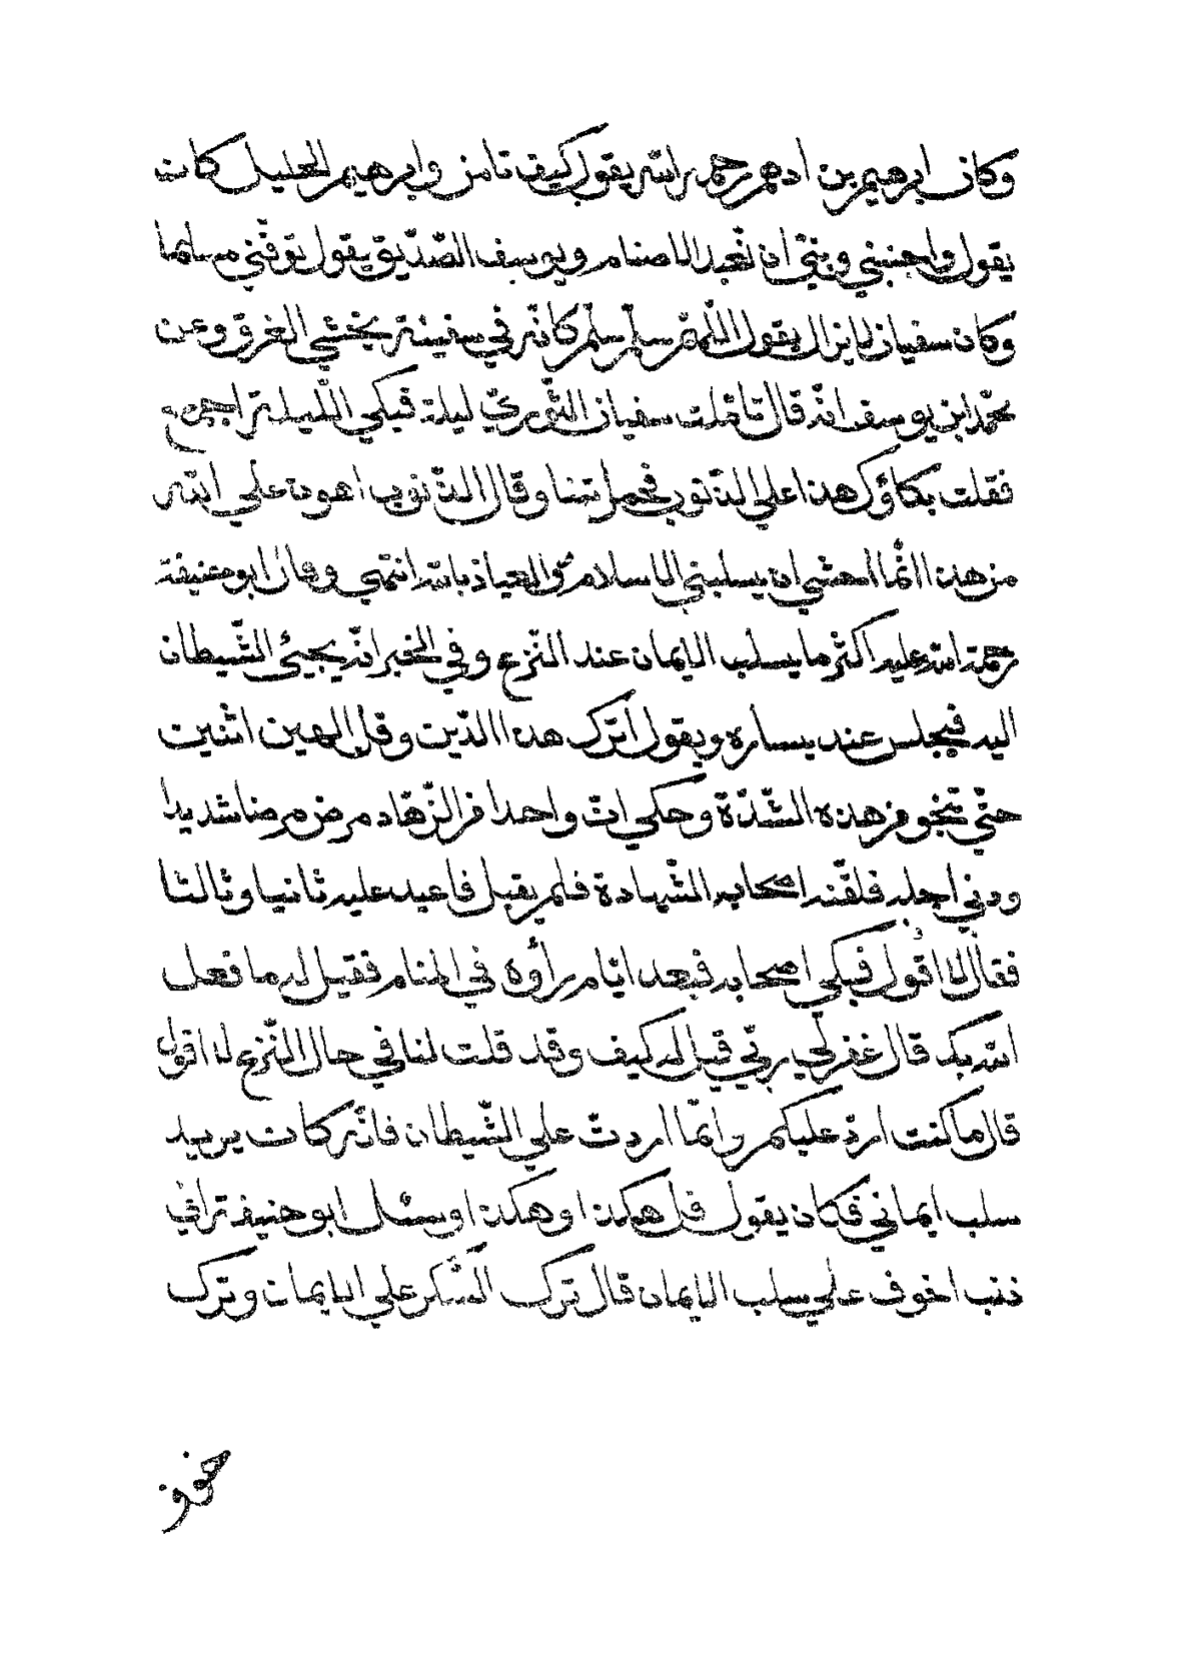 وكان ابرهيم بن ادهم رحمه الله يقول كيف تامن وابرهيم الخليل كان
يقول واجنبني وبنيّ ان نّعبد الاصنام ويوسف الصّدّيق يقول توفّني مسلما
وكان سفيان لا يزال يقول اللّهمّ سلّم سلّم كانّه في سفينة يخشي الغرق وعن
محمّد ابن يوسف انّه قال تامّلت سفيان الثّوريّ ليلة فبكي اللّيلة اجمع
فقلت بكاؤك هذا علي الذّنوب فحمل تبنا وقال الذّنوب اهون علي الله
من هذا انّما اخشي ان يسلبني الاسلام والعياذ بالله انتهي وقال ابوحنيفة
رحمة الله عليه اكثر ما يسلب الايمان عند النّزع وفي الخبر انّه يجيئ الشّيطان
اليه فيجلس عند يساره ويقول اترك هذا الدّين وقل الهين اثنين
حتّي تنجو من هذه الشّدّة وحكي انّ واحدا من الزّهّاد مرض مرضا شديدا
ودني اجله فلقّنه اصحابه الشّهادة فلم يقبل فاعيد عليه ثانيا وثالثا
فقال لا اقول فبكي اصحابه فبعد ايّام رأوه في المنام فقيل له ما فعل
الله بك قال غفر لي ربّي قيل له كيف وقد قلت لنا في حال النّزع لا اقول
قال ما كنت اردّ عليكم وانّما اردت علي الشّيطان فانّه كان يريد
سلب ايماني فكان يقول قل هكذا وهكذا وسئل ابو حنيفة
ذنب اخوف علي سلب الايمان قال ترك الشّكر علي الايمان وترك
خوف